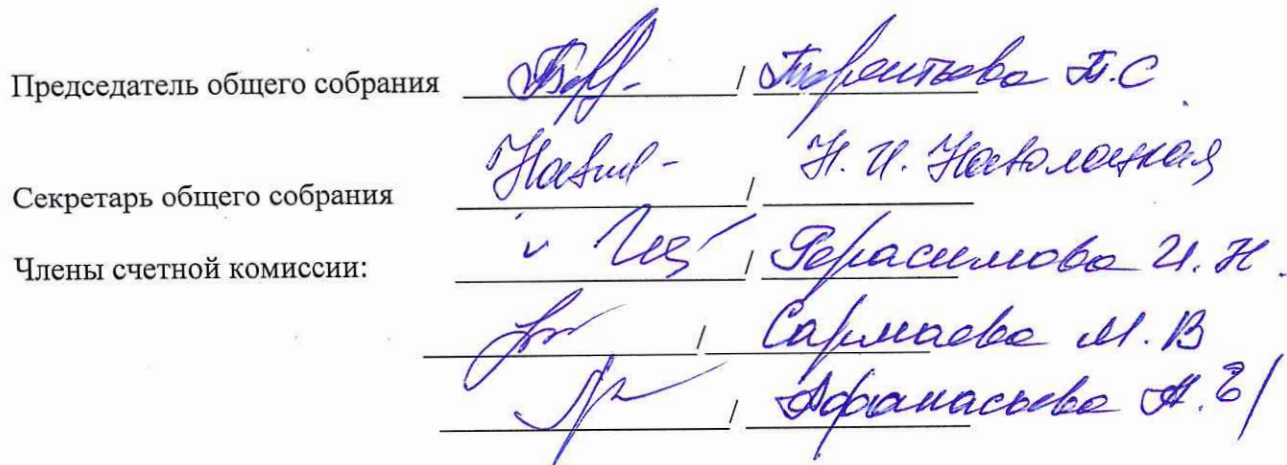 Председатель общего собрания / Терентьева Т.С
Секретарь общего собрания / Н. И. Наволоцкая
Члены счетной комиссии: / Герасимова И. Н.
/ Сармаева М. В
/ Афанасьева А. Е/